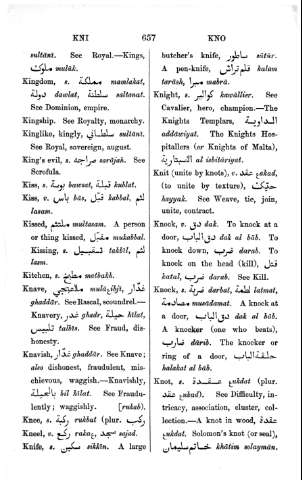 KNI 657 KNO
sultánt. See Royal.—Kings,
ملوك mulúk.
Kingdom, s. مملكة mamlakat,
دولة dawlat, سلطنة saltanat.
See Dominion, empire.
Kingship. See Royalty, monarchy.
Kinglike, kingly, سلطاني sultánt.
See Royal, sovereign, august.
King's evil, s. سراجة See
Scrofula.
Kiss, s. بوسة bawsat, قبلة kublat.
Kiss, v. باس bás, قبل kabbal, لثم
lasam.
Kissed, ملتثم multasam. A person
or thing kissed, مقبل mukabbal.
Kissing, s. تقبيل takbíl, لثم
lasm.
Kitchen, s. مطبخ matbakh.
Knave,
ghaddár. See Rascal, scoundrel.—
Knavery, غدر ghadr, حيلة hílat,
تلبيس talbís. See Fraud, dis-
honesty.
Knavish, غدّار ghaddár. See Knave;
also dishonest, fraudulent, mis-
chievous, waggish.—Knavishly,
بالحيلة bil hílat. See Fraudu-
lently; waggishly. [rukab).
Knee, s. ركبة rukbat (plur. ركب
Kneel, v. ركع raka<, سجد sajad.
Knife, s. سكين sikkín. A large
butcher's knife, ساطور sátúr.
A pen-knife, قلم تراش kalam
tarásh, مبرا mabra.
Knight, s. كوالير kavállier. See
Cavalier, hero, champion.—The
Knights Templars, الداوية
addáwiyat. The Knights Hos-
pitallers (or Knights of Malta),
الاسبتارية al isbitáriyat.
Knit (unite by knots), v. عقد >akad,
(to unite by texture), حيّك
hayyak. See Weave, tie, join,
unite, contract.
Knock, v. دق dak. To knock at a
door, دق الباب dak al báb. To
knock down, ضرب zarab. To
knock on the head (kill), قتل
katal, ضرب darab. See Kill.
Knock, s. ضربة darbat, لطمة latmat,
مصادمة musádamat. A knock at
a door, دق الباب dak al báb.
A knocker (one who beats),
ضارب dárib. The knocker or
ring of a door, حلقة الباب
halakat al báb.
Knot, s. عقدة >ukdat (plur.
عقد >ukad). See Difficulty, in-
tricacy, association, cluster, col-
lection.—A knot in wood, عقدة
>ukdat. Solomon's knot (or seal),
خاتم سليمان khátim solaymán.